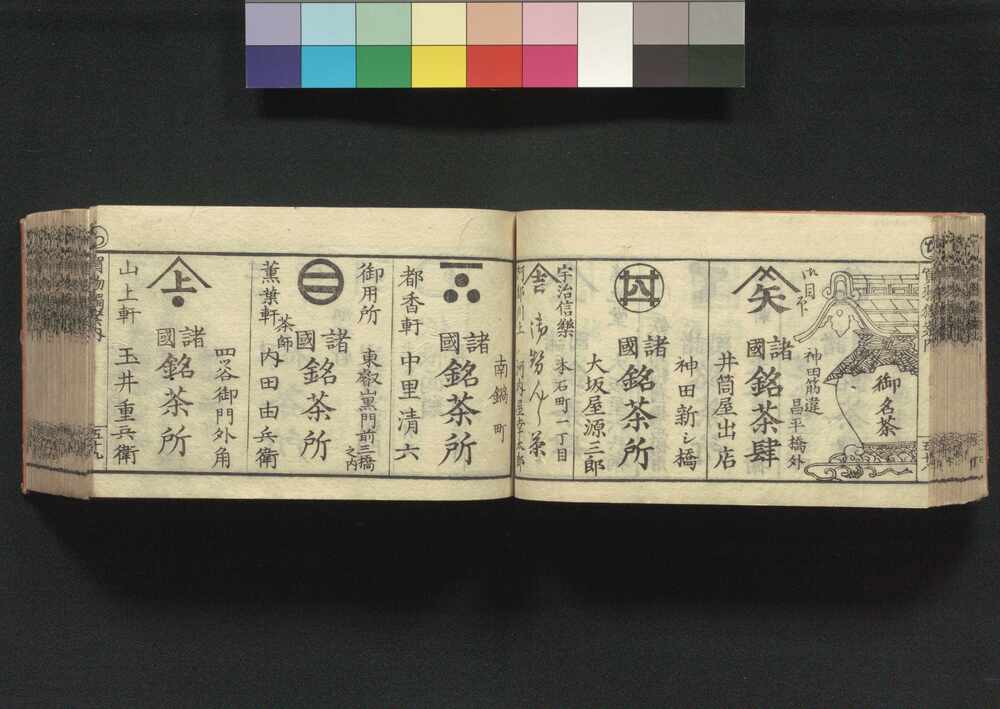 御名茶
神田筋違
昌平橋外
諸國銘茶肆
井筒屋出店
神田新シ橋
諸國銘茶所
大坂屋源三郎
本石町一丁目
宇治信樂
南鍋町
諸國銘茶所
都香軒 中里清六
御用所 東叡山黒門前三橋之内
諸國銘茶所
茶師
薫葉軒 内田由兵衛
四ツ谷御門外角
上
諸國銘茶所
山上軒 玉井重兵衛
五十九